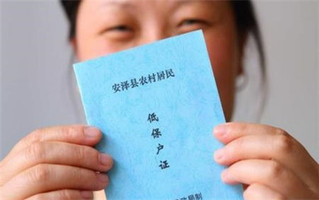 安泽县农村居民
低保户证